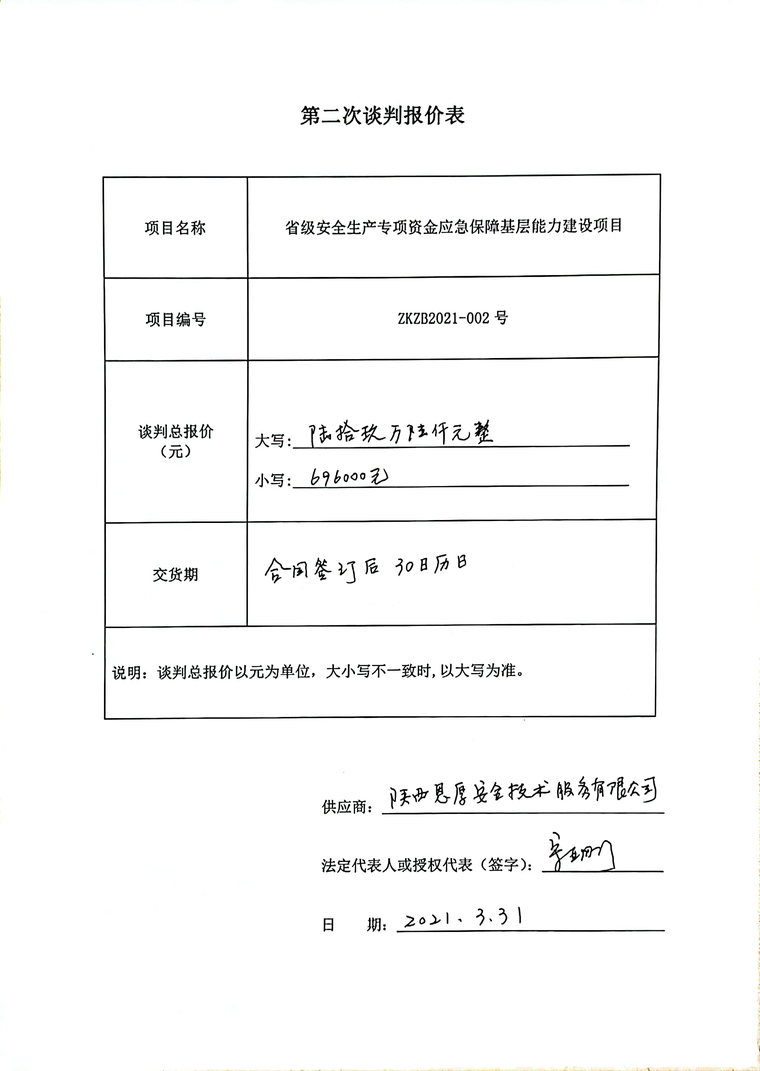 第二次谈判报价表
项目名称
省级安全生产专项资金应急保障基层能力建设项目
项目编号
ZKZB2021-002 号
谈判总报价
（元）
大写：陆拾玖万陆仟元整
小写：696000元
交货期
合同签订后 30日历日
说明：谈判总报价以元为单位，大小写不一致时,以大写为准。
供应商：陕西恩厚安全技术服务有限公司
法定代表人或授权代表（签字）：
日 期：2021、3.31